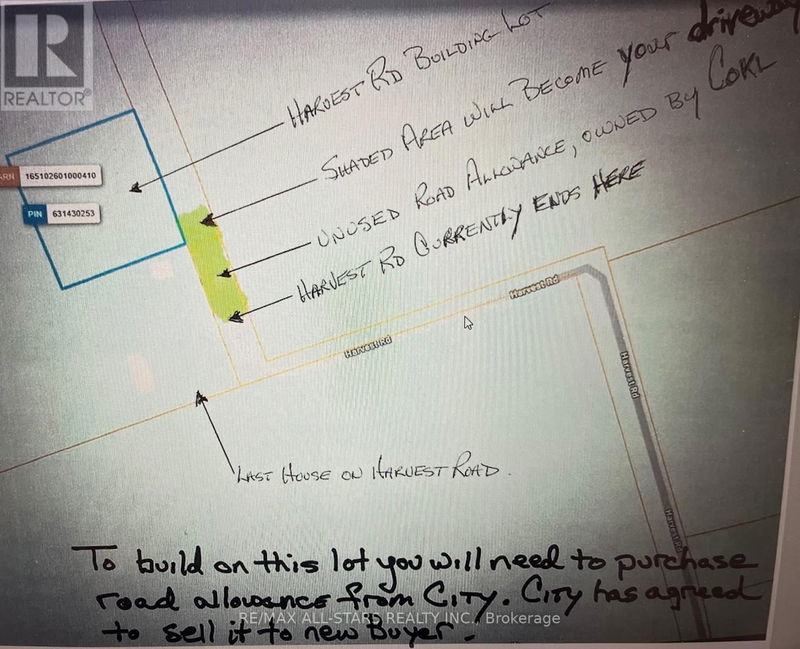 REALTOR®
HARVEST RD BUILDING LOT
SHADED AREA WILL BECOME your driveway
UNUSED ROAD ALLOWANCE, OWNED BY COKL
HARVEST RD CURRENTLY ENDS HERE
ARN 165102601000410
PIN 631430253
Harvest Rd
Harvest Rd
Harvest Rd
Harvest Rd
LAST HOUSE ON HARVEST ROAD.
To build on this lot you will need to purchase
road allowance from CITY. CITY has agreed
RE/MAX ALL-STARS REALTY INC., Brokerage
to sell it to new Buyer.